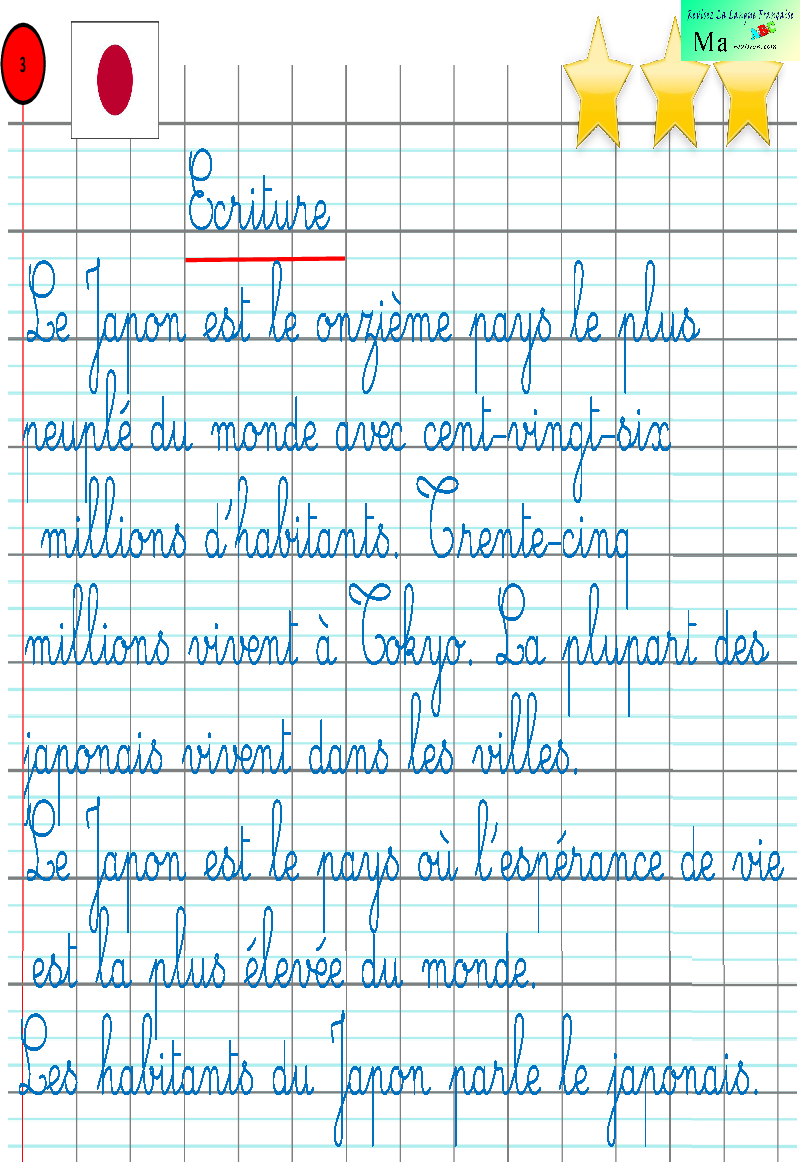 Revisez La Langue Française
3
Ma
Ecriture
Le Japon est le onzième pays le plus
peuplé du monde avec cent-vingt-six
millions d'habitants. Trente-cinq
millions vivent à Tokyo. La plupart des
japonais vivent dans les villes.
Le Japon est le pays où l'espérance de vie
est la plus élevée du monde.
Les habitants du Japon parle le japonais.